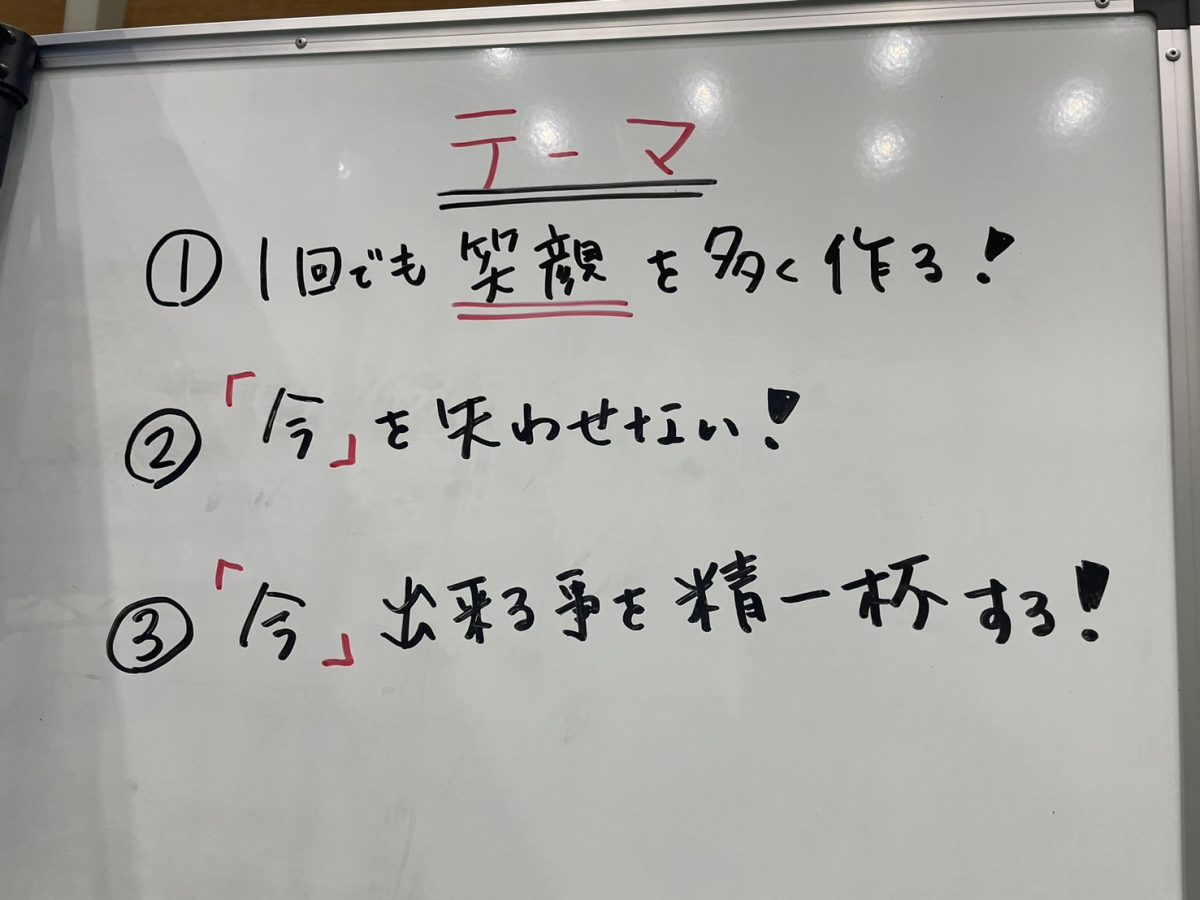 テーマ
① 1回でも笑顔を多く作る!
② 「今」を失わせない!
③ 「今」出来る事を精一杯する!